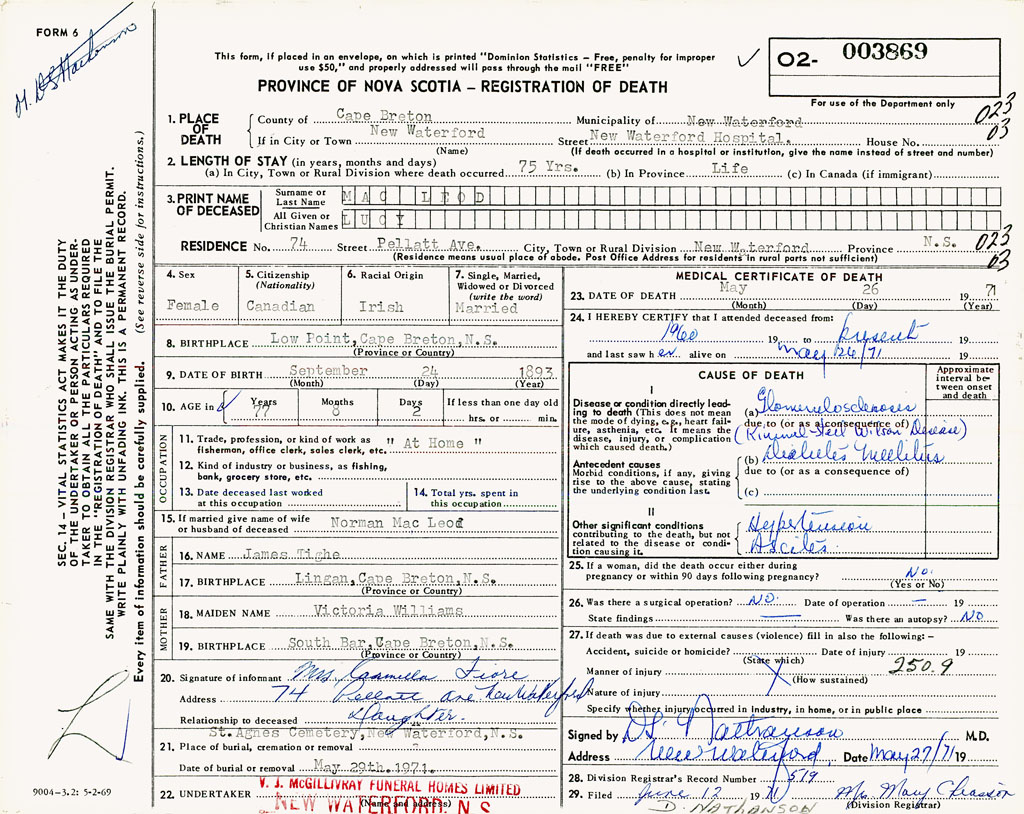 FORM 6
This form, if placed in an envelope, on which is printed "Dominion Statistics – Free, penalty for improper
use $50," and properly addressed will pass through the mail "FREE"
02- 003869
For use of the Department only
PROVINCE OF NOVA SCOTIA – REGISTRATION OF DEATH
023
03
1. PLACE OF DEATH
County of Cape Breton Municipality of New Waterford
If in City or Town New Waterford Street New Waterford Hospital. House No.
(Name) (If death occurred in a hospital or institution, give the name instead of street and number)
2. LENGTH OF STAY (in years, months and days)
(a) In City, Town or Rural Division where death occurred 75 Yrs. (b) In Province Life (c) In Canada (if immigrant)
3. PRINT NAME OF DECEASED
Surname or Last Name MAC LEOD
All Given or Christian Names LUCY
RESIDENCE No. 74 Street Pellatt Ave. City, Town or Rural Division New Waterford Province N.S. 023
(Residence means usual place of abode. Post Office Address for residents in rural parts not sufficient) 03
4. Sex
Female
5. Citizenship
(Nationality)
Canadian
6. Racial Origin
Irish
7. Single, Married,
Widowed or Divorced
(write the word)
Married
8. BIRTHPLACE Low Point, Cape Breton, N.S.
(Province or Country)
9. DATE OF BIRTH September 24 1893
(Month) (Day) (Year)
10. AGE in Years 77 Months 8 Days 2 If less than one day old
hrs. or min.
OCCUPATION
11. Trade, profession, or kind of work as " At Home "
fisherman, office clerk, sales clerk, etc.
12. Kind of industry or business, as fishing,
bank, grocery store, etc.
13. Date deceased last worked
at this occupation
14. Total yrs. spent in
this occupation
15. If married give name of wife
or husband of deceased Norman Mac Leod
FATHER
16. NAME James Tighe
17. BIRTHPLACE Lingan, Cape Breton, N.S.
(Province or Country)
MOTHER
18. MAIDEN NAME Victoria Williams
19. BIRTHPLACE South Bar, Cape Breton, N.S.
(Province or Country)
20. Signature of informant Mrs. Carmella Fiore
Address 74 Pellatt ave. New Waterford
Relationship to deceased Daughter.
St. Agnes Cemetery, New Waterford, N.S.
21. Place of burial, cremation or removal
Date of burial or removal May 29th. 1971.
22. UNDERTAKER V. J. McGILLIVRAY FUNERAL HOMES LIMITED
(Name and address)
NEW WATERFORD, N.S.
MEDICAL CERTIFICATE OF DEATH
23. DATE OF DEATH May 26 1971
(Month) (Day) (Year)
24. I HEREBY CERTIFY that I attended deceased from:
1960 19 to present 19
and last saw her alive on May 26/71 19
CAUSE OF DEATH
Approximate
interval be-
tween onset
and death
I
Disease or condition directly lead-
ing to death (This does not mean
the mode of dying, e.g., heart fail-
ure, asthenia, etc. It means the
disease, injury, or complication
which caused death.)
(a) Glomerulosclerosis
due to (or as a consequence of)
(Kimmel-Steil Wilson Disease)
Antecedent causes
Morbid conditions, if any, giving
rise to the above cause, stating
the underlying condition last.
(b) Diabetes Mellitus
due to (or as a consequence of)
(c)
II
Other significant conditions
contributing to the death, but not
related to the disease or condi-
tion causing it.
Hypertension
Ascites
25. If a woman, did the death occur either during
pregnancy or within 90 days following pregnancy? No.
(Yes or No)
26. Was there a surgical operation? NO. Date of operation — 19
State findings — Was there an autopsy? NO
27. If death was due to external causes (violence) fill in also the following: –
Accident, suicide or homicide? Date of injury 19
(State which)
Manner of injury 250.9
(How sustained)
Nature of injury
Specify whether injury occurred in industry, in home, or in public place
Signed by DS Nathanson M.D.
Address New Waterford, Date May 27/71 19
28. Division Registrar's Record Number 519
29. Filed June 12 1971 Mrs Mary Chiasson
(Division Registrar)
D. NATHANSON
SEC. 14 – VITAL STATISTICS ACT MAKES IT THE DUTY
OF THE UNDERTAKER OR PERSON ACTING AS UNDER-
TAKER TO OBTAIN ALL THE PARTICULARS REQUIRED
IN THE "REGISTRATION OF DEATH" AND TO FILE THE
SAME WITH THE DIVISION REGISTRAR WHO SHALL ISSUE THE BURIAL PERMIT.
WRITE PLAINLY WITH UNFADING INK. THIS IS A PERMANENT RECORD.
Every item of information should be carefully supplied. (See reverse side for instructions.)
9004-3.2: 5-2-69